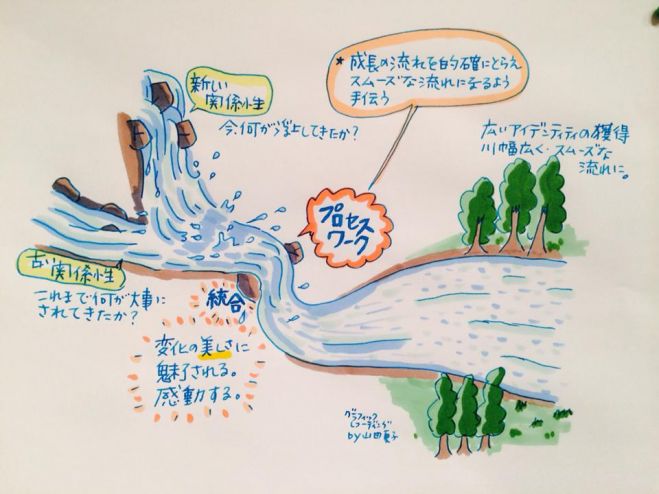 新しい
関係性
今、何が浮上してきたか?
* 成長の流れを的確にとらえ
スムーズな流れになるよう
手伝う
広いアイデンティティの獲得
川幅広く・スムーズな
流れに。
プロセス
ワーク
古い関係性
これまで何が大事に
されてきたか?
統合
変化の美しさに
魅了される。
感動する。
グラフィック
レコーディング
by山田